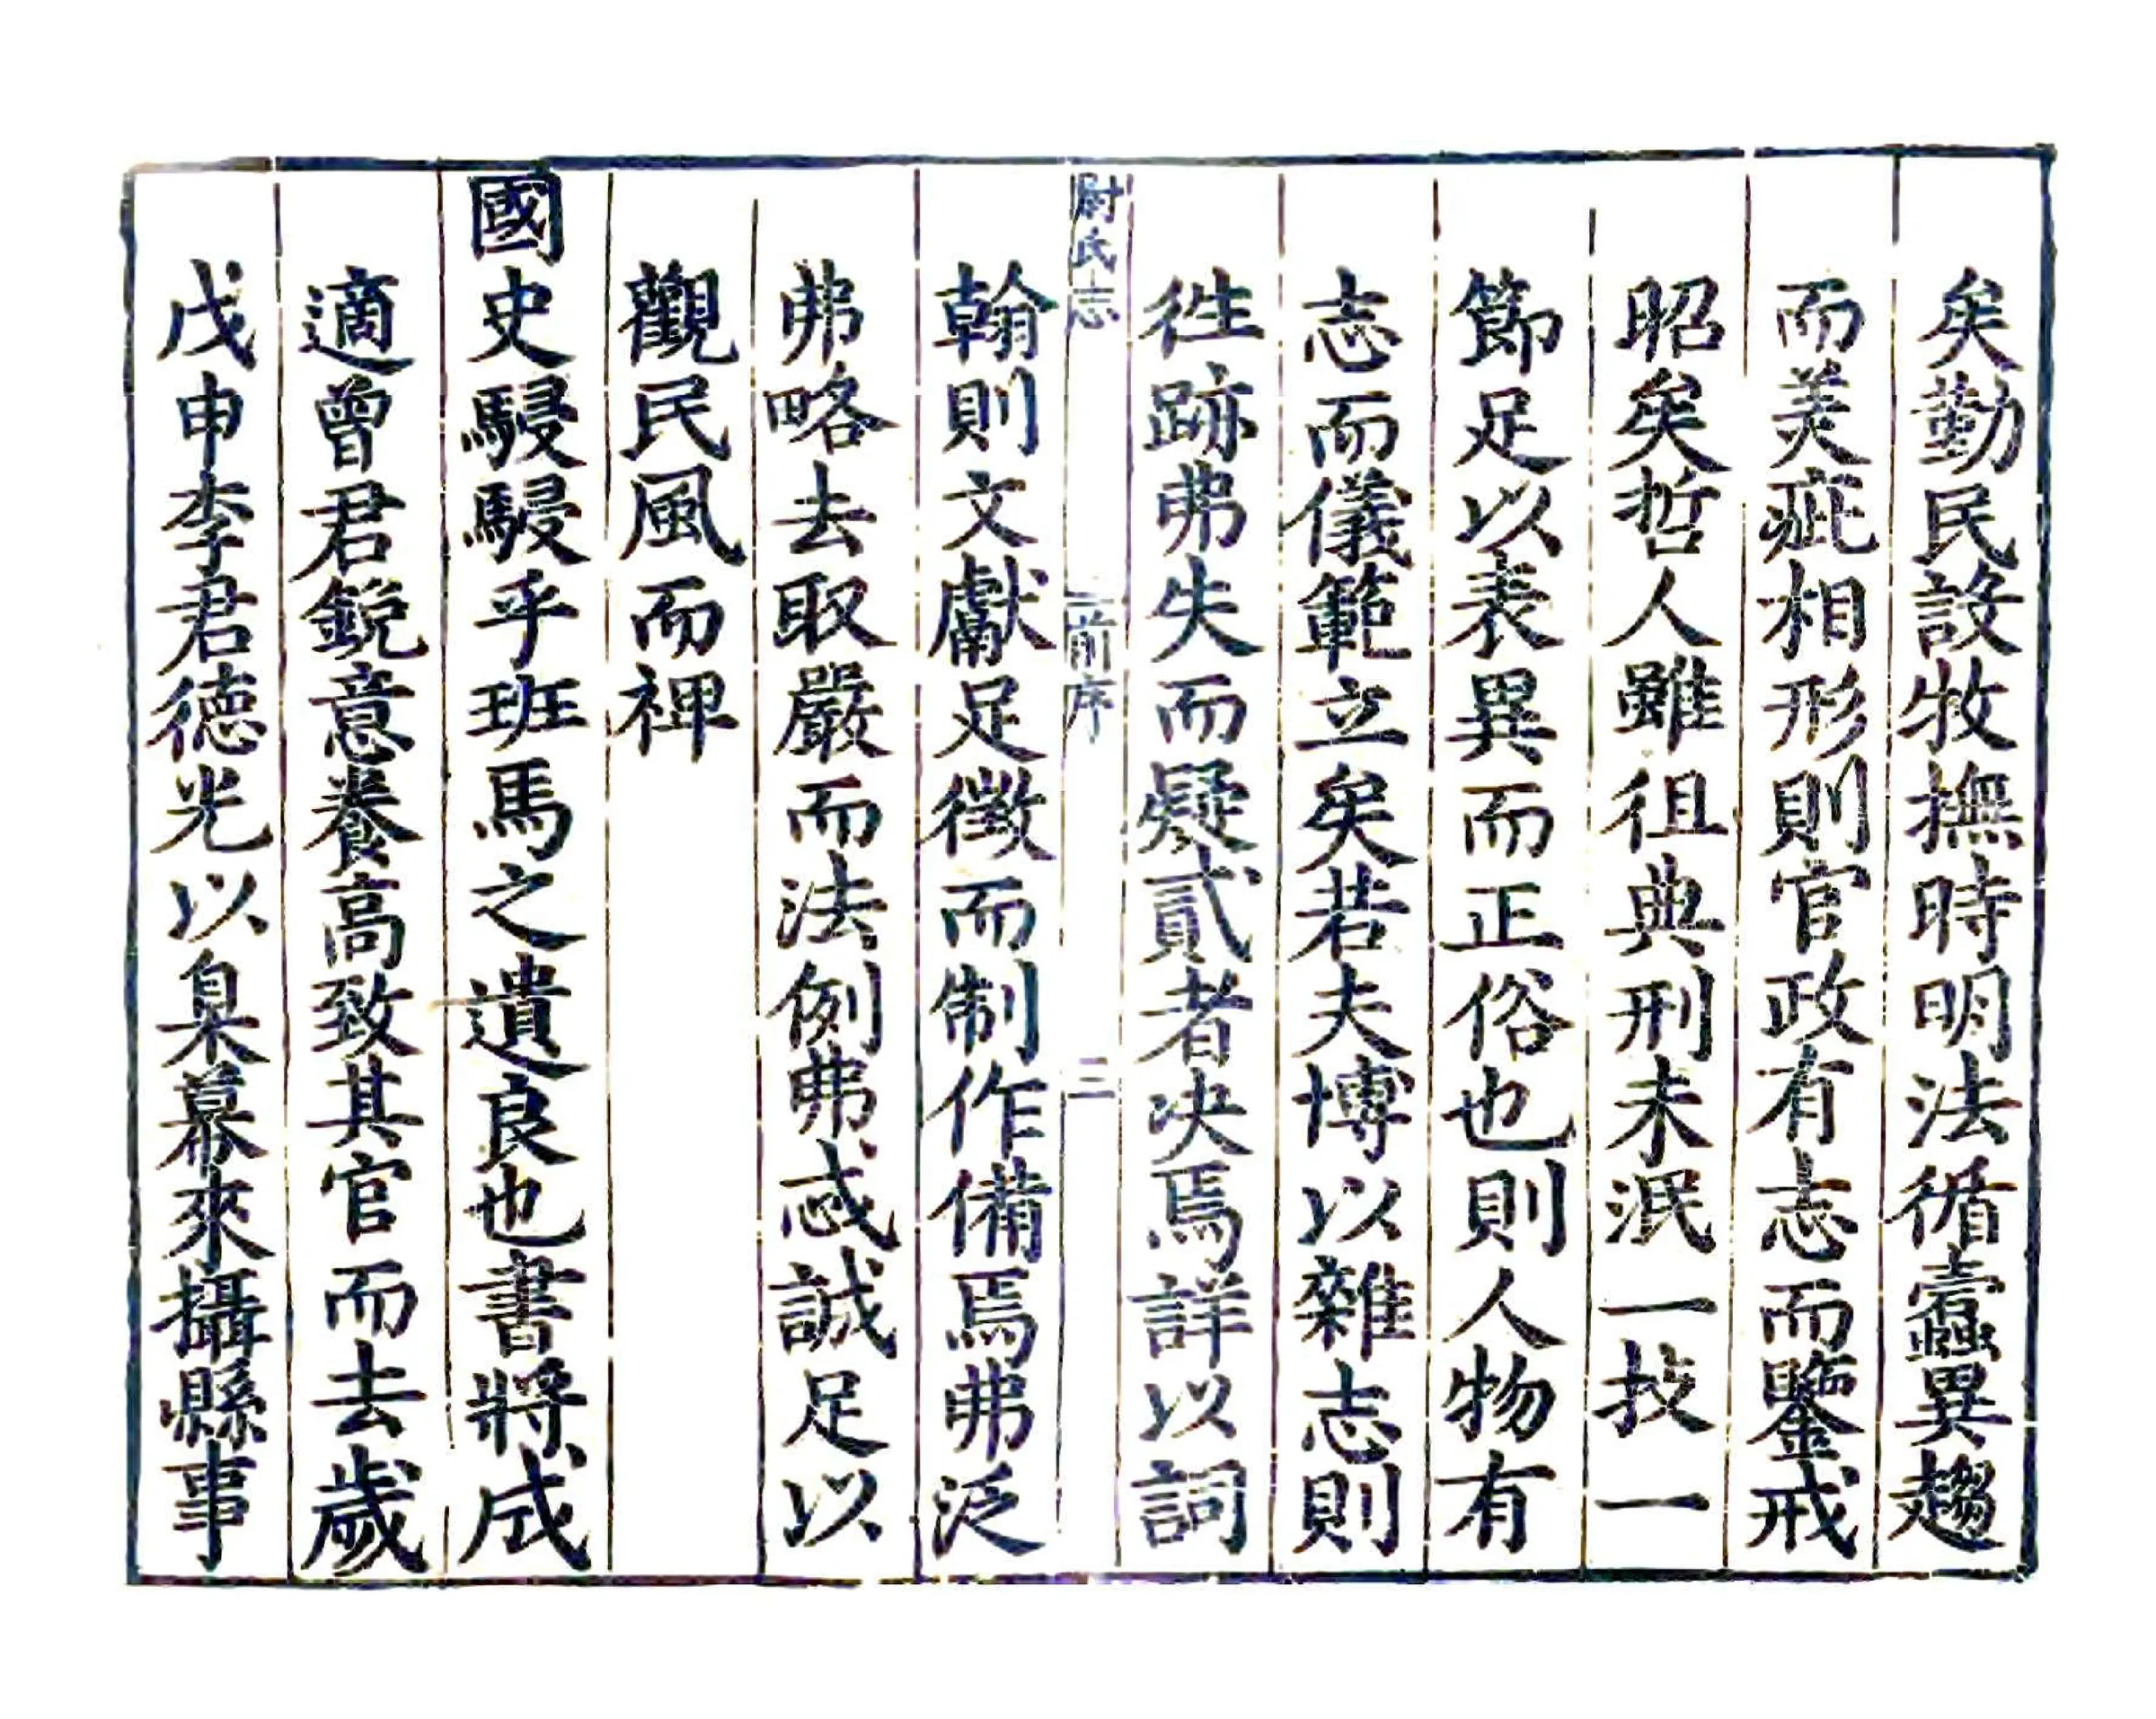 矣勤民設牧撫時明法循蠹異趨
而美疵相形則官政有志而鑒戒
昭矣哲人雖徂典刑未泯一技一
節足以表異而正俗也則人物有
志而儀範立矣若夫博以雜志則
徃跡弗失而疑貳者决焉詳以詞
尉氏志 前序 三
翰則文獻足徵而制作備焉弗泛
弗略去取嚴而法例弗忒誠足以
觀民風而裨
國史駸駸乎班馬之遺良也書將成
適曾君銳意養高致其官而去歲
戊申李君德光以臬幕來攝縣事